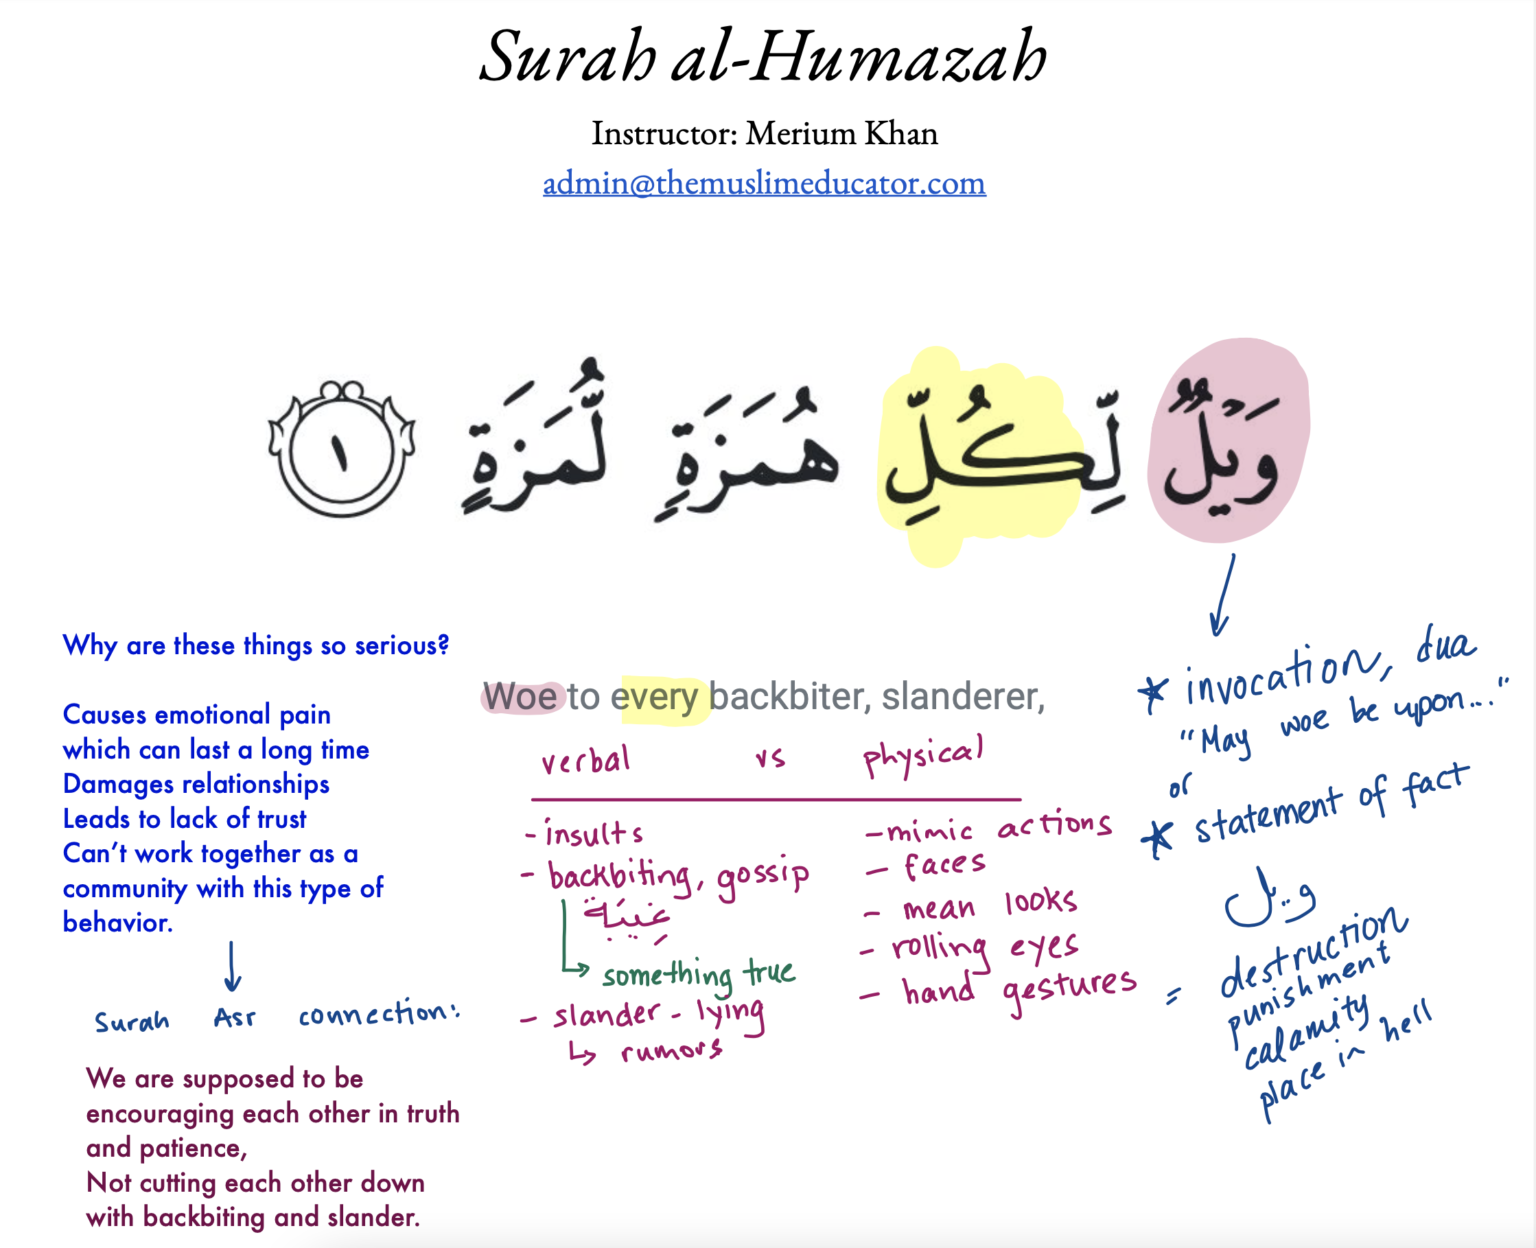 Surah al-Humazah
Instructor: Merium Khan
admin@themuslimeducator.com
وَيۡلٞ لِّكُلِّ هُمَزَةٖ لُّمَزَةٍ ١
Why are these things so serious?
Causes emotional pain
which can last a long time
Damages relationships
Leads to lack of trust
Can't work together as a
community with this type of
behavior.
Surah Asr connection:
We are supposed to be
encouraging each other in truth
and patience,
Not cutting each other down
with backbiting and slander.
Woe to every backbiter, slanderer,
verbal vs physical
- insults
- backbiting, gossip
غِيبَة
something true
- slander - lying
rumors
- mimic actions
- faces
- mean looks
- rolling eyes
- hand gestures
* invocation, dua
"May woe be upon..."
or
* statement of fact
ويل
= destruction
punishment
calamity
place in hell